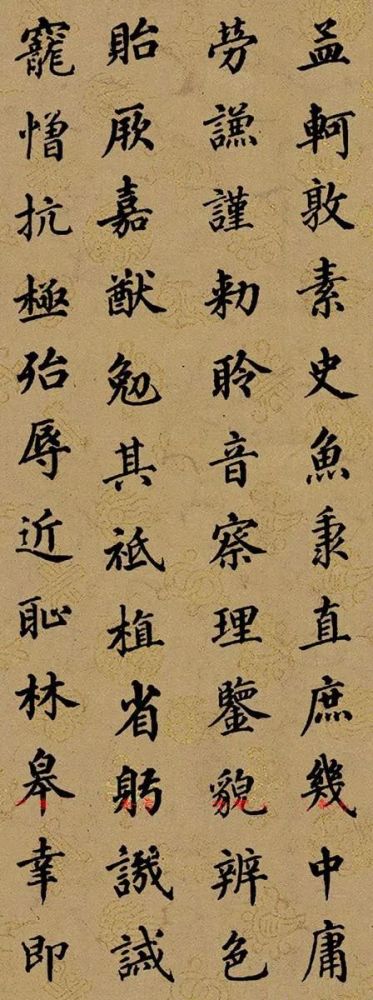 孟軻敦素史魚秉直庶幾中庸
勞謙謹勅聆音察理鑒貌辨色
貽厥嘉猷勉其祗植省躬譏誡
寵憎抗極殆辱近恥林皋幸即